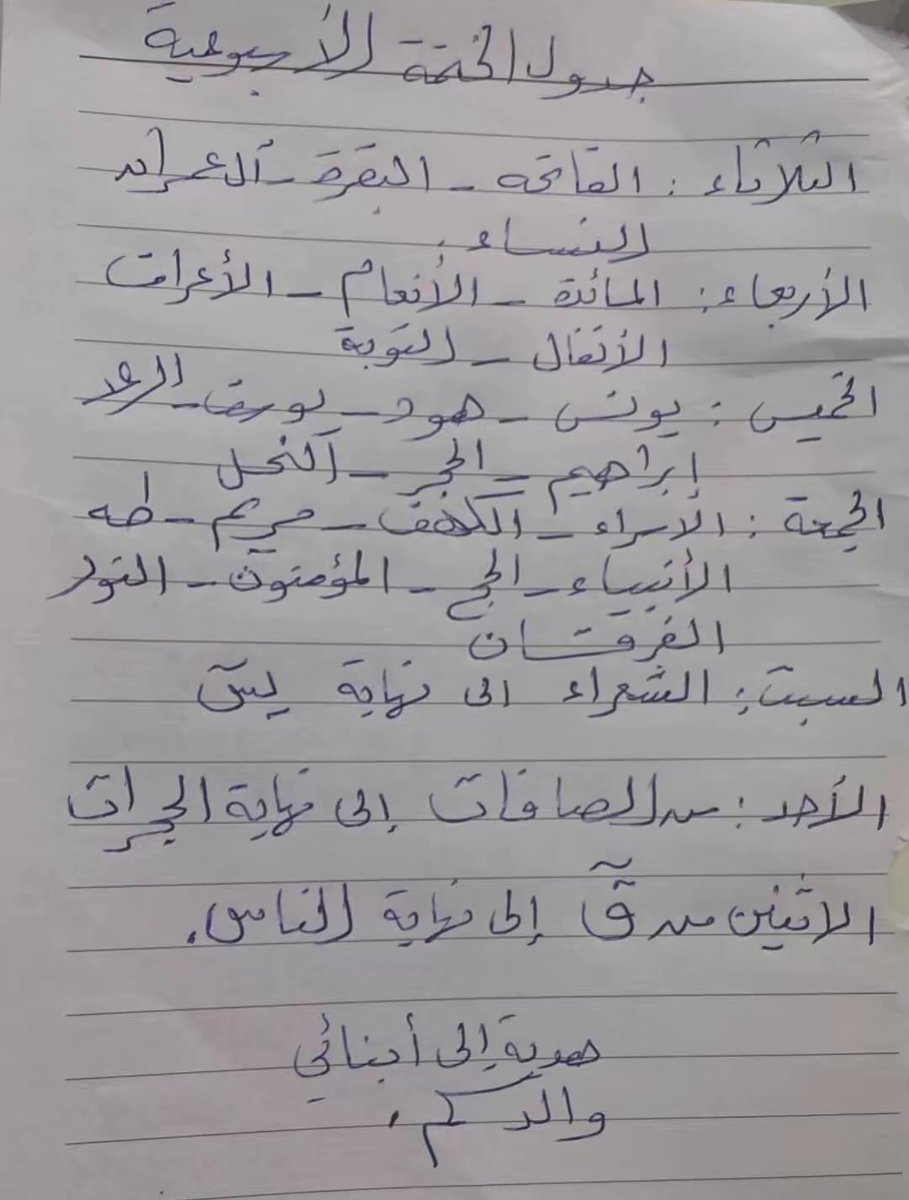 جدول الختمة الأسبوعية
الثلاثاء : الفاتحه - البقرة - آل عمران
النساء .
الأربعاء : المائدة - الأنعام - الأعراف
الأنفال - التوبة
الخميس : يونس - هود - يوسف - الرعد
إبراهيم - الحجر - النحل
الجمعة : الإسراء - الكهف - مريم - طه
الأنبياء - الحج - المؤمنون - النور
الفرقان
السبت : الشعراء الى نهاية يسۤ
الأحد : من الصافات إلى نهاية الحجرات
الاثنين من قۤ إلى نهاية الناس .
هدية إلى أبنائي
والدكم .